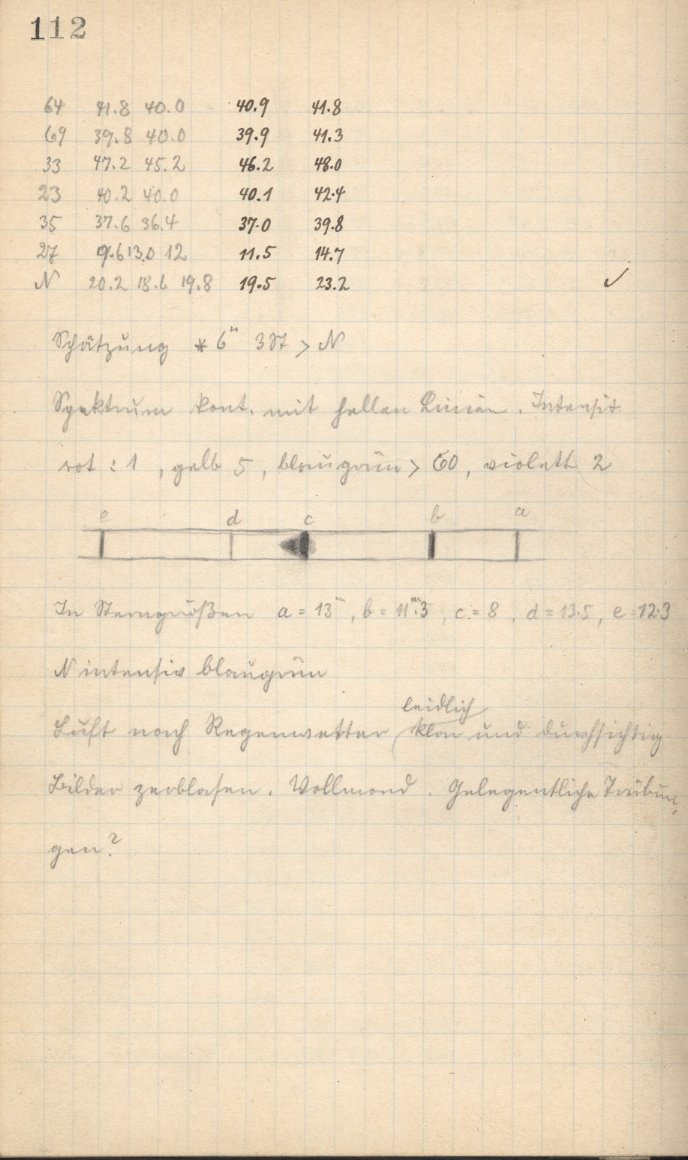 112
64 41.8 40.0 40.9 41.8
69 39.8 40.0 39.9 41.3
33 47.2 45.2 46.2 48.0
23 40.2 40.0 40.1 42.4
35 37.6 36.4 37.0 39.8
27 9.6 13.0 12 11.5 14.7
N 20.2 18.6 19.8 19.5 23.2 ✓
Schätzung * 6" 3St > N
Spektrum kont. mit hellen Linien. Intensit
rot : 1, gelb 5, blaugrün > 60, violett 2
e d c b a
In Sterngrößen a = 13ᵐ, b = 11ᵐ.3, c = 8, d = 13.5, e = 12.3
N intensiv blaugrün
leidlich
Luft nach Regenwetter klar und durchsichtig
Bilder zerblasen. Vollmond. Gelegentliche Trübun-
gen?